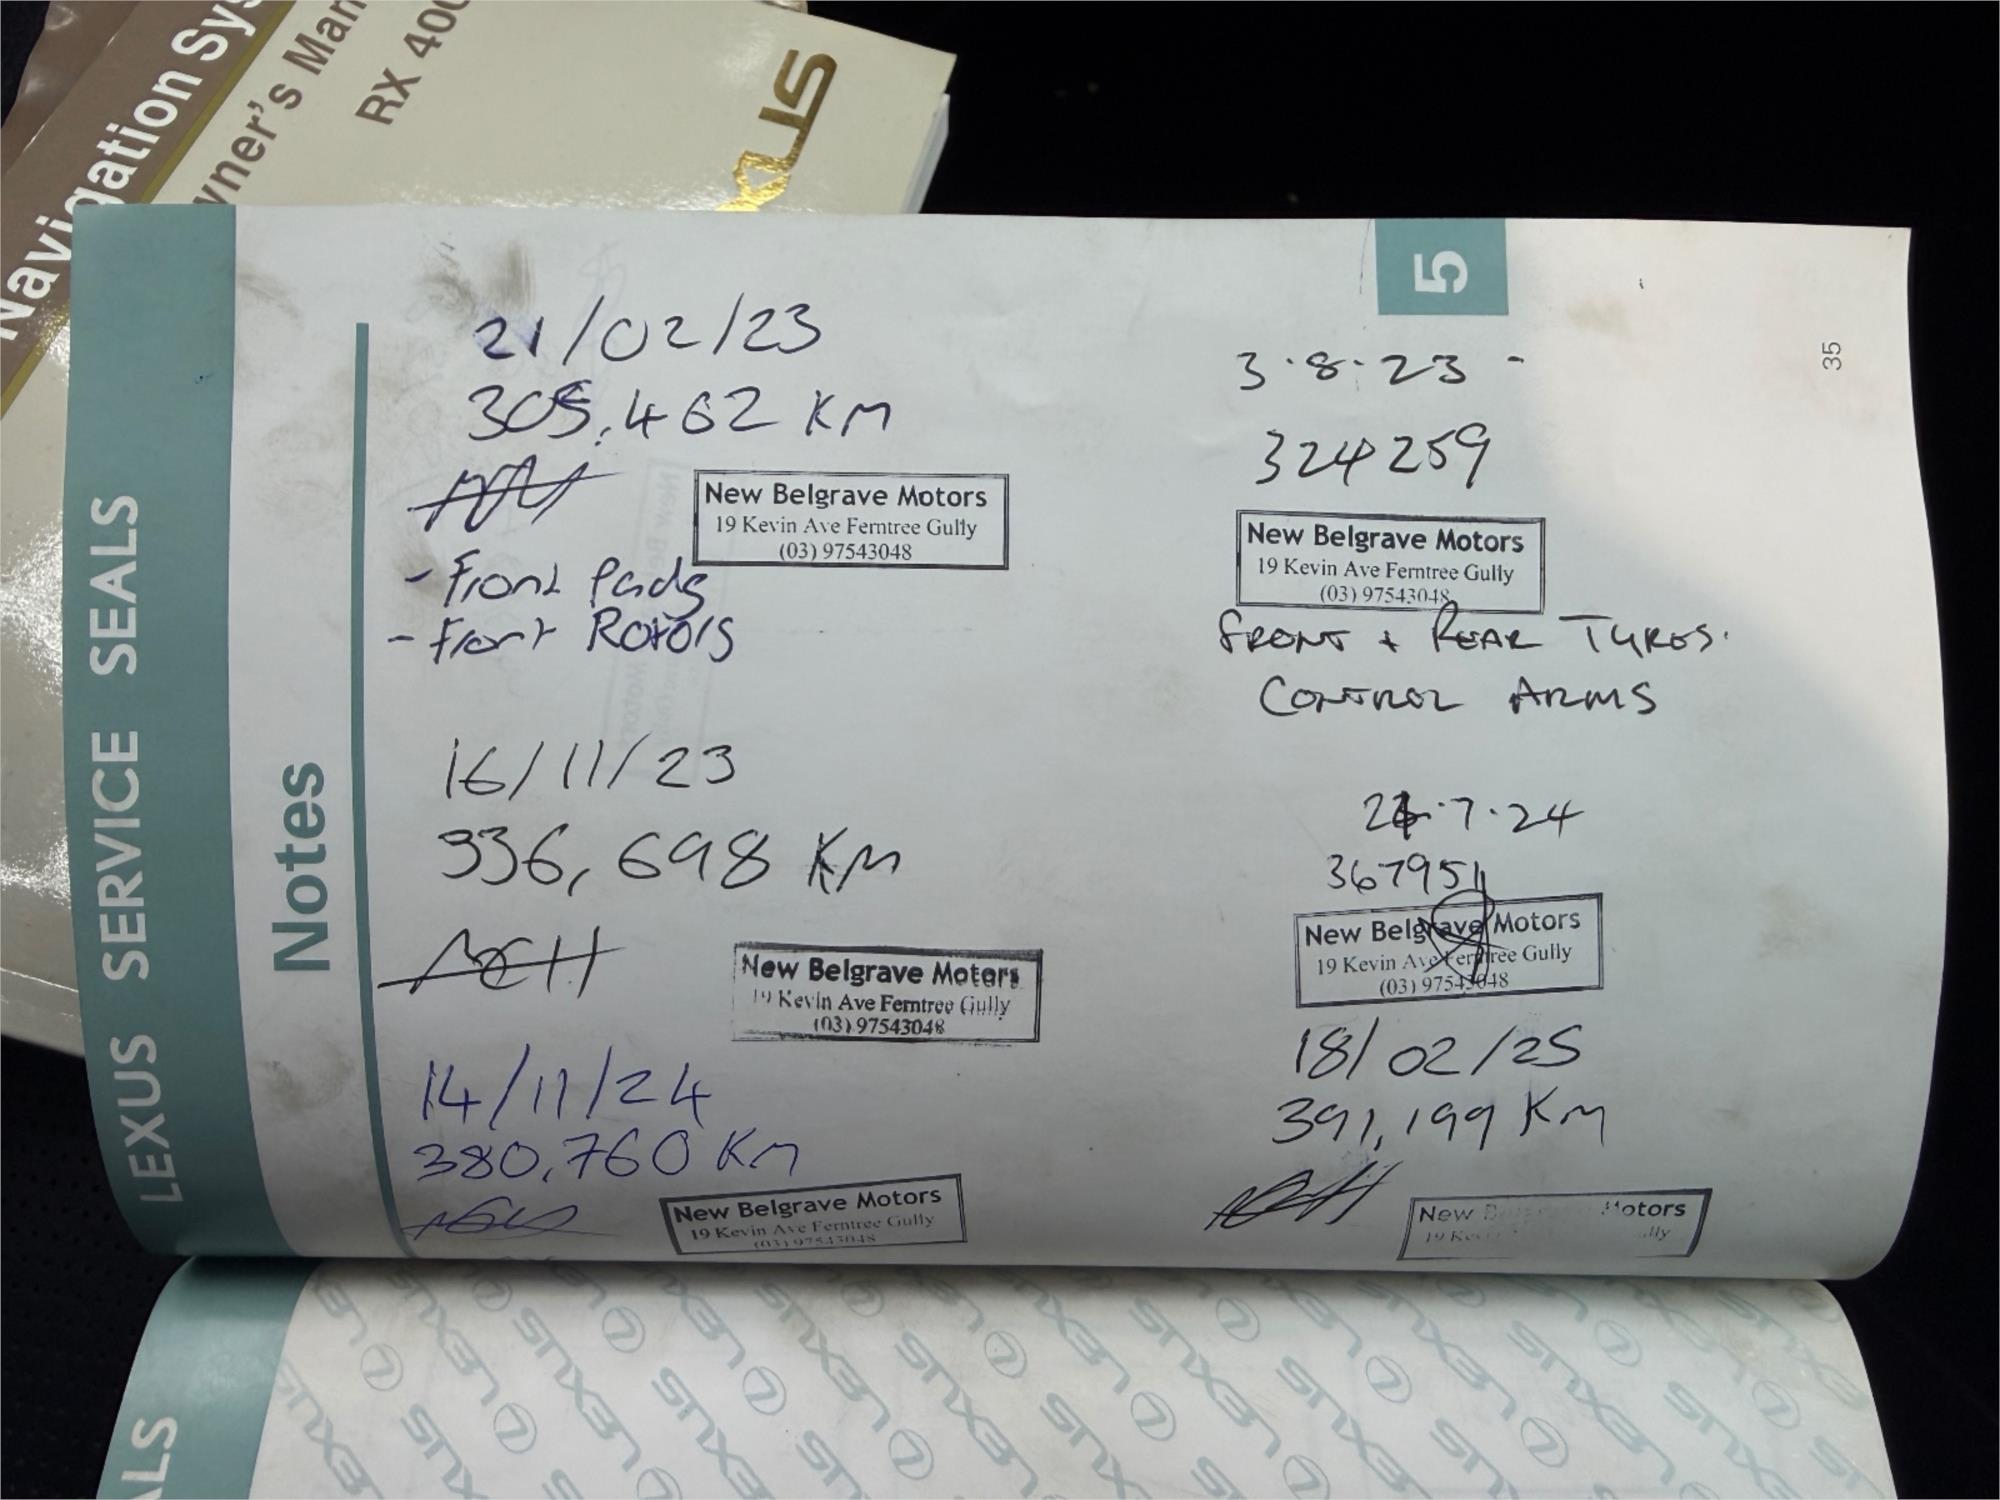 Navigation Sys
wner's Man
RX 400
XUS
LEXUS SERVICE SEALS
Notes
5
35
21/02/23
305,462 KM
New Belgrave Motors
19 Kevin Ave Ferntree Gully
(03) 97543048
- Front Pads
- Front Rotors
3.8.23 -
324259
New Belgrave Motors
19 Kevin Ave Ferntree Gully
(03) 97543048
FRONT + REAR TYRES.
CONTROL ARMS
16/11/23
336,698 KM
New Belgrave Motors
19 Kevin Ave Ferntree Gully
(03) 97543048
.7.24
367951
New Belgrave Motors
19 Kevin Ave Ferntree Gully
(03) 97543048
14/11/24
380,760 KM
New Belgrave Motors
19 Kevin Ave Ferntree Gully
(03) 97543048
18/02/25
391,199 KM
New Motors
19
ALS
LEXUS LEXUS LEXUS LEXUS LEXUS